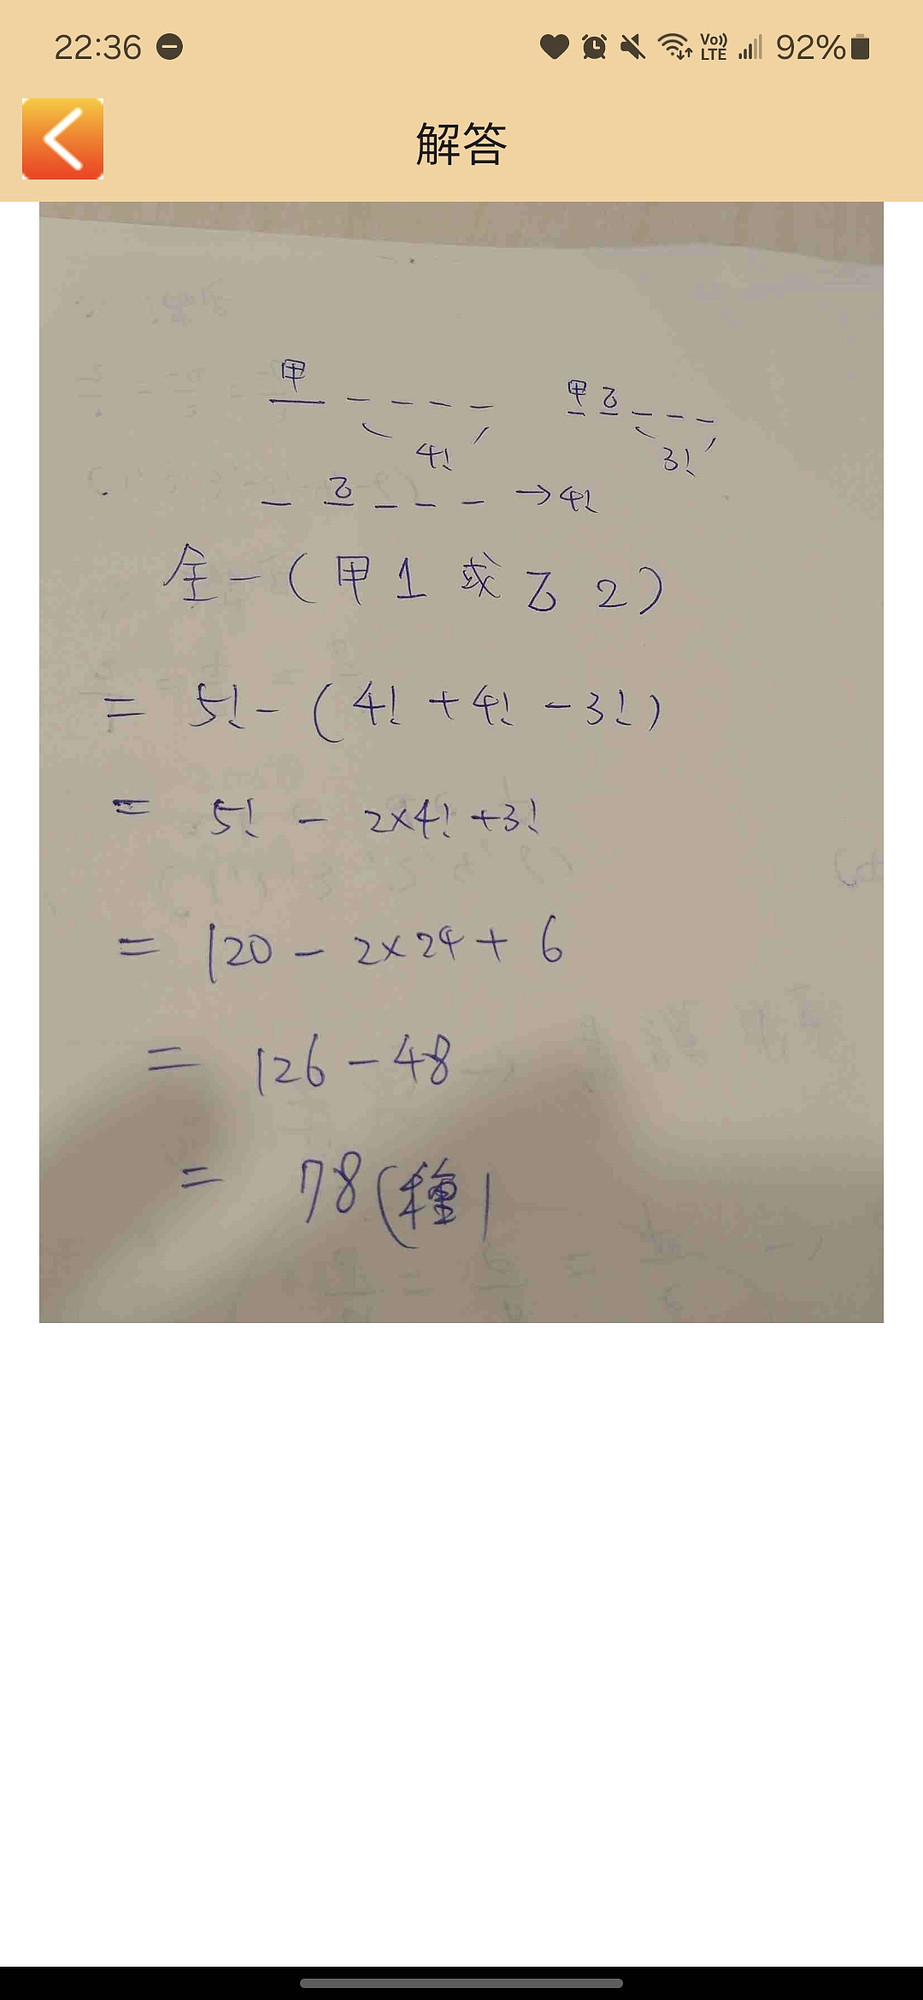 22:36
Vo)) LTE 92%
解答
甲 _ _ _ _ 甲乙 _ _ _
4! 3!
_ 乙 _ _ _ →4!
全-(甲1或乙2)
= 5!-(4!+4!-3!)
= 5!-2×4!+3!
= 120-2×24+6
= 126-48
= 78(種)